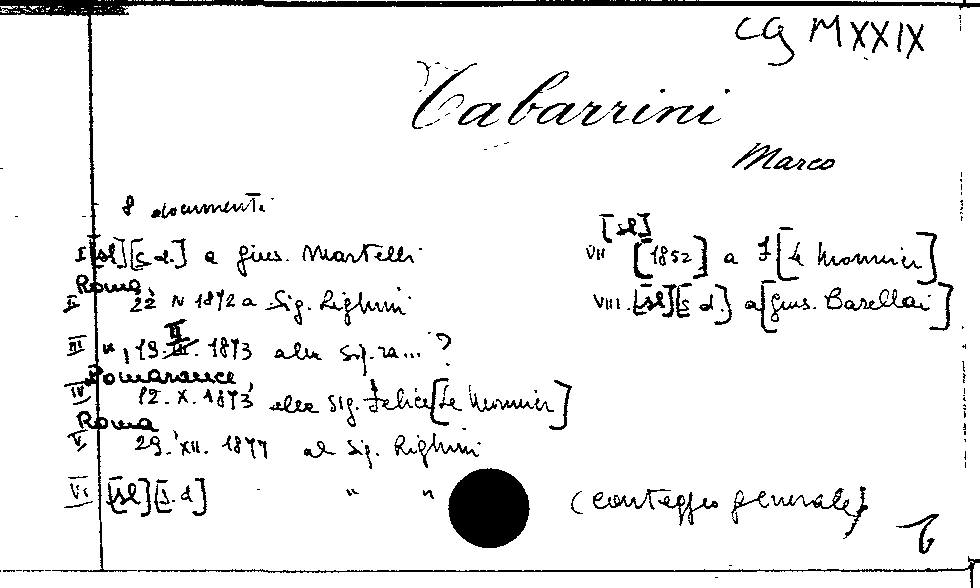 CG MXXIX
Tabarrini
Marco
8 documenti
I [sl][s.d.] a Gius. Martelli
Roma,
II 22 N 1872 a Sig. Righini
III ", 19. II. 1873 alla Sig.ra... ?
Pomarance,
IV 12. X. 1873 alla Sig. Felice [Le Monnier]
Roma
V 29. XII. 1877 al Sig. Righini
VI [sl][s.d] " "
[sl]
VII [1852] a F [Le Monnier]
VIII. [sl][s d.] a [Gius. Barellai]
(carteggio generale)